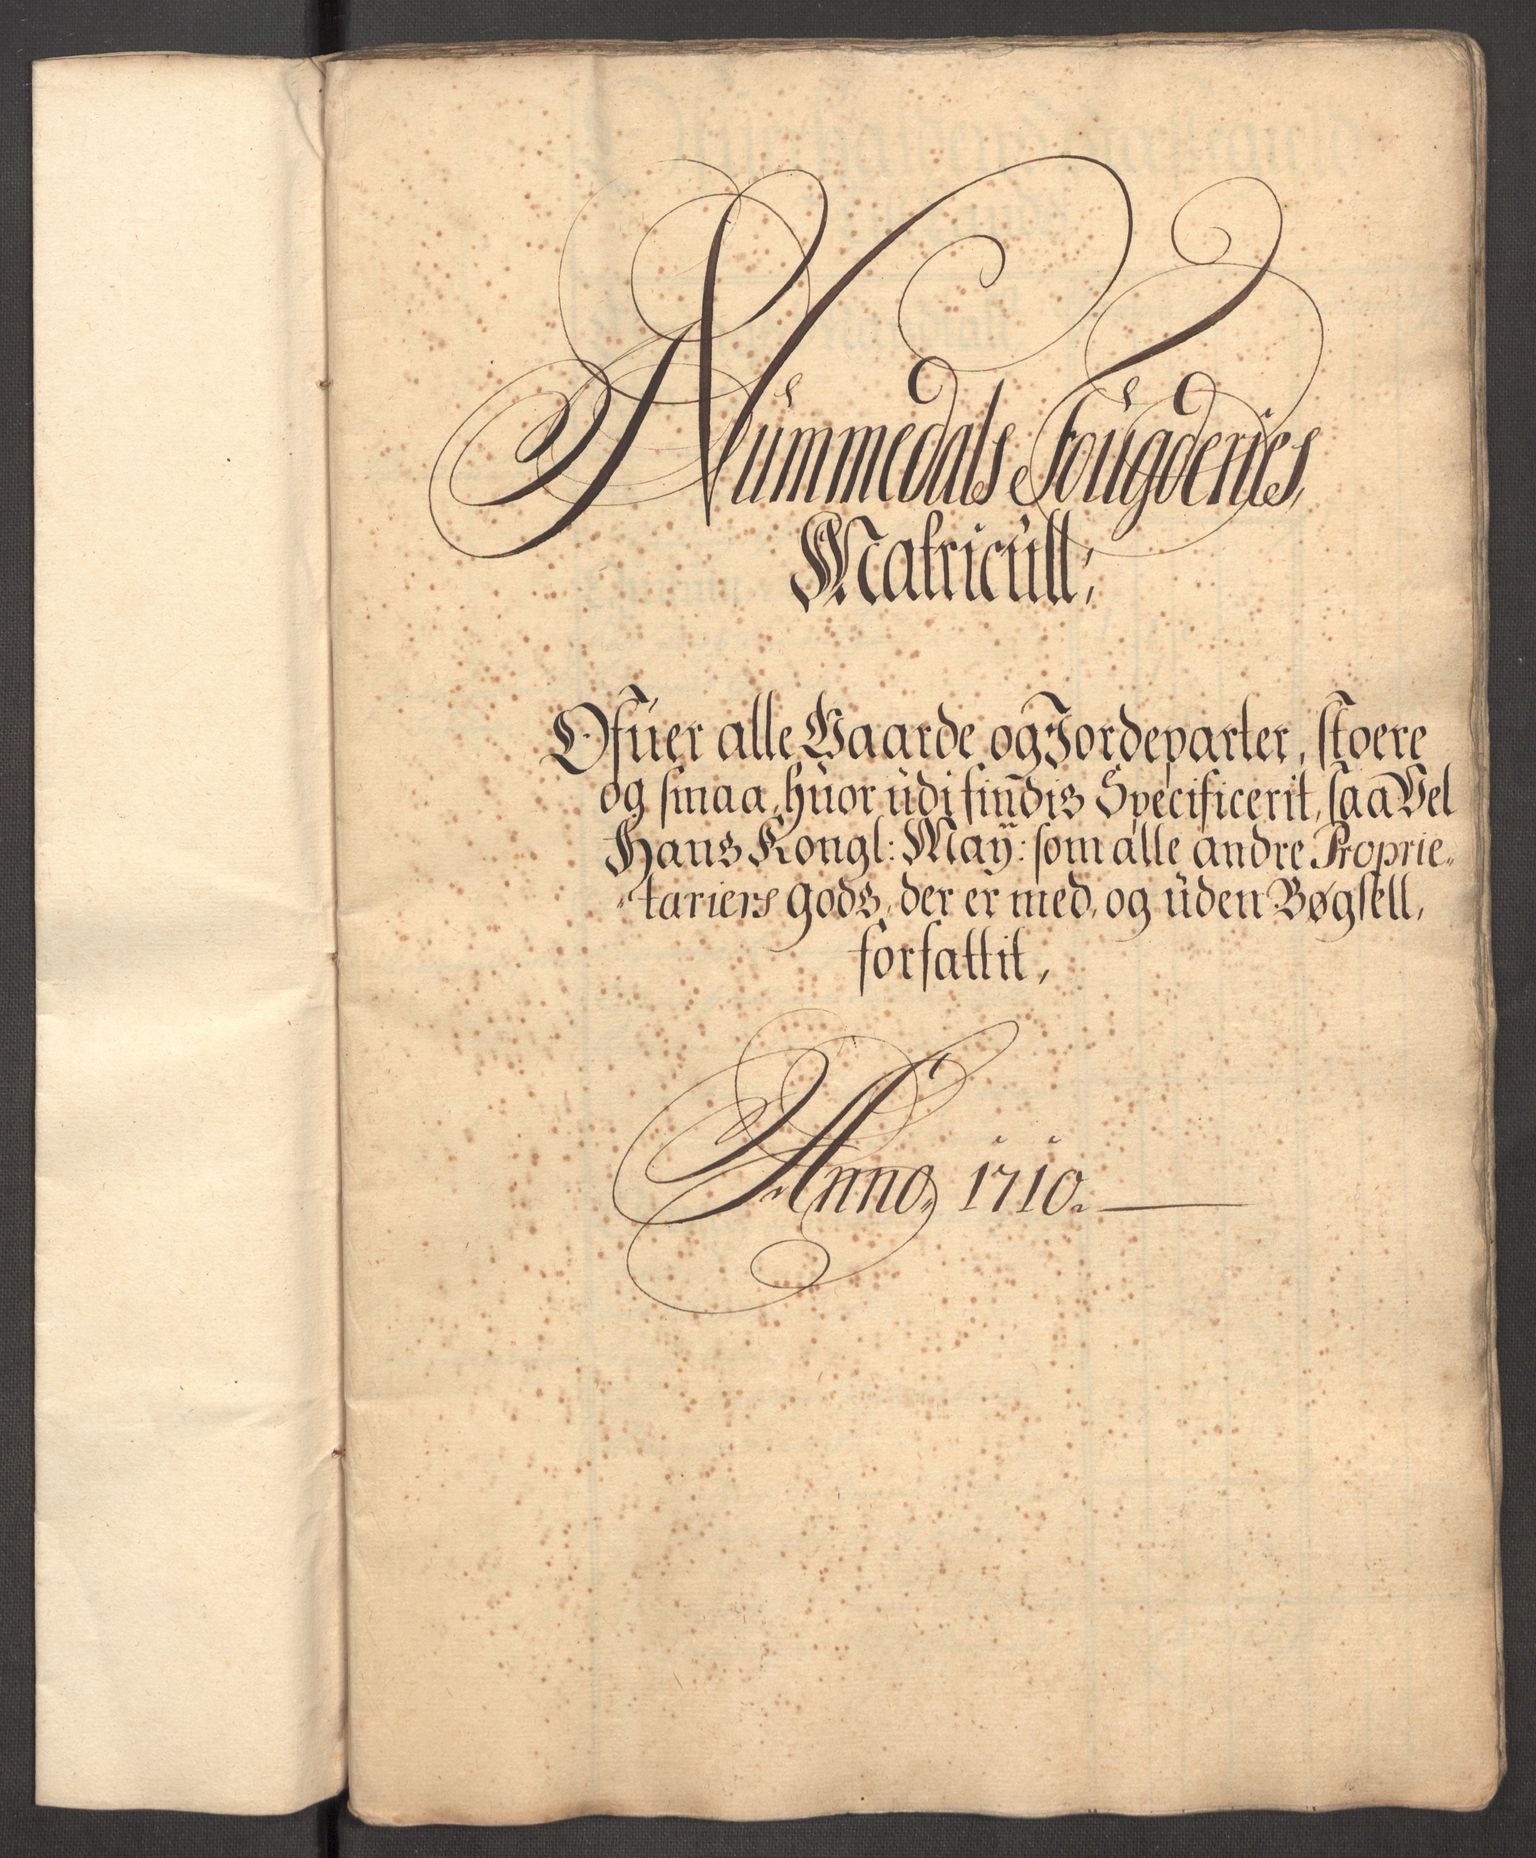 Nummedals Fougderies,
Matricull;
Ofuer alle Gaarde og Jordeparter, stoere
og smaa, huor udi findis Specificerit, saa Vel
Hans Kongl: May: som alle andre Proprie-
-tariers gods, der er med, og uden Bøgsell,
forfattit,
Anno, 1710.